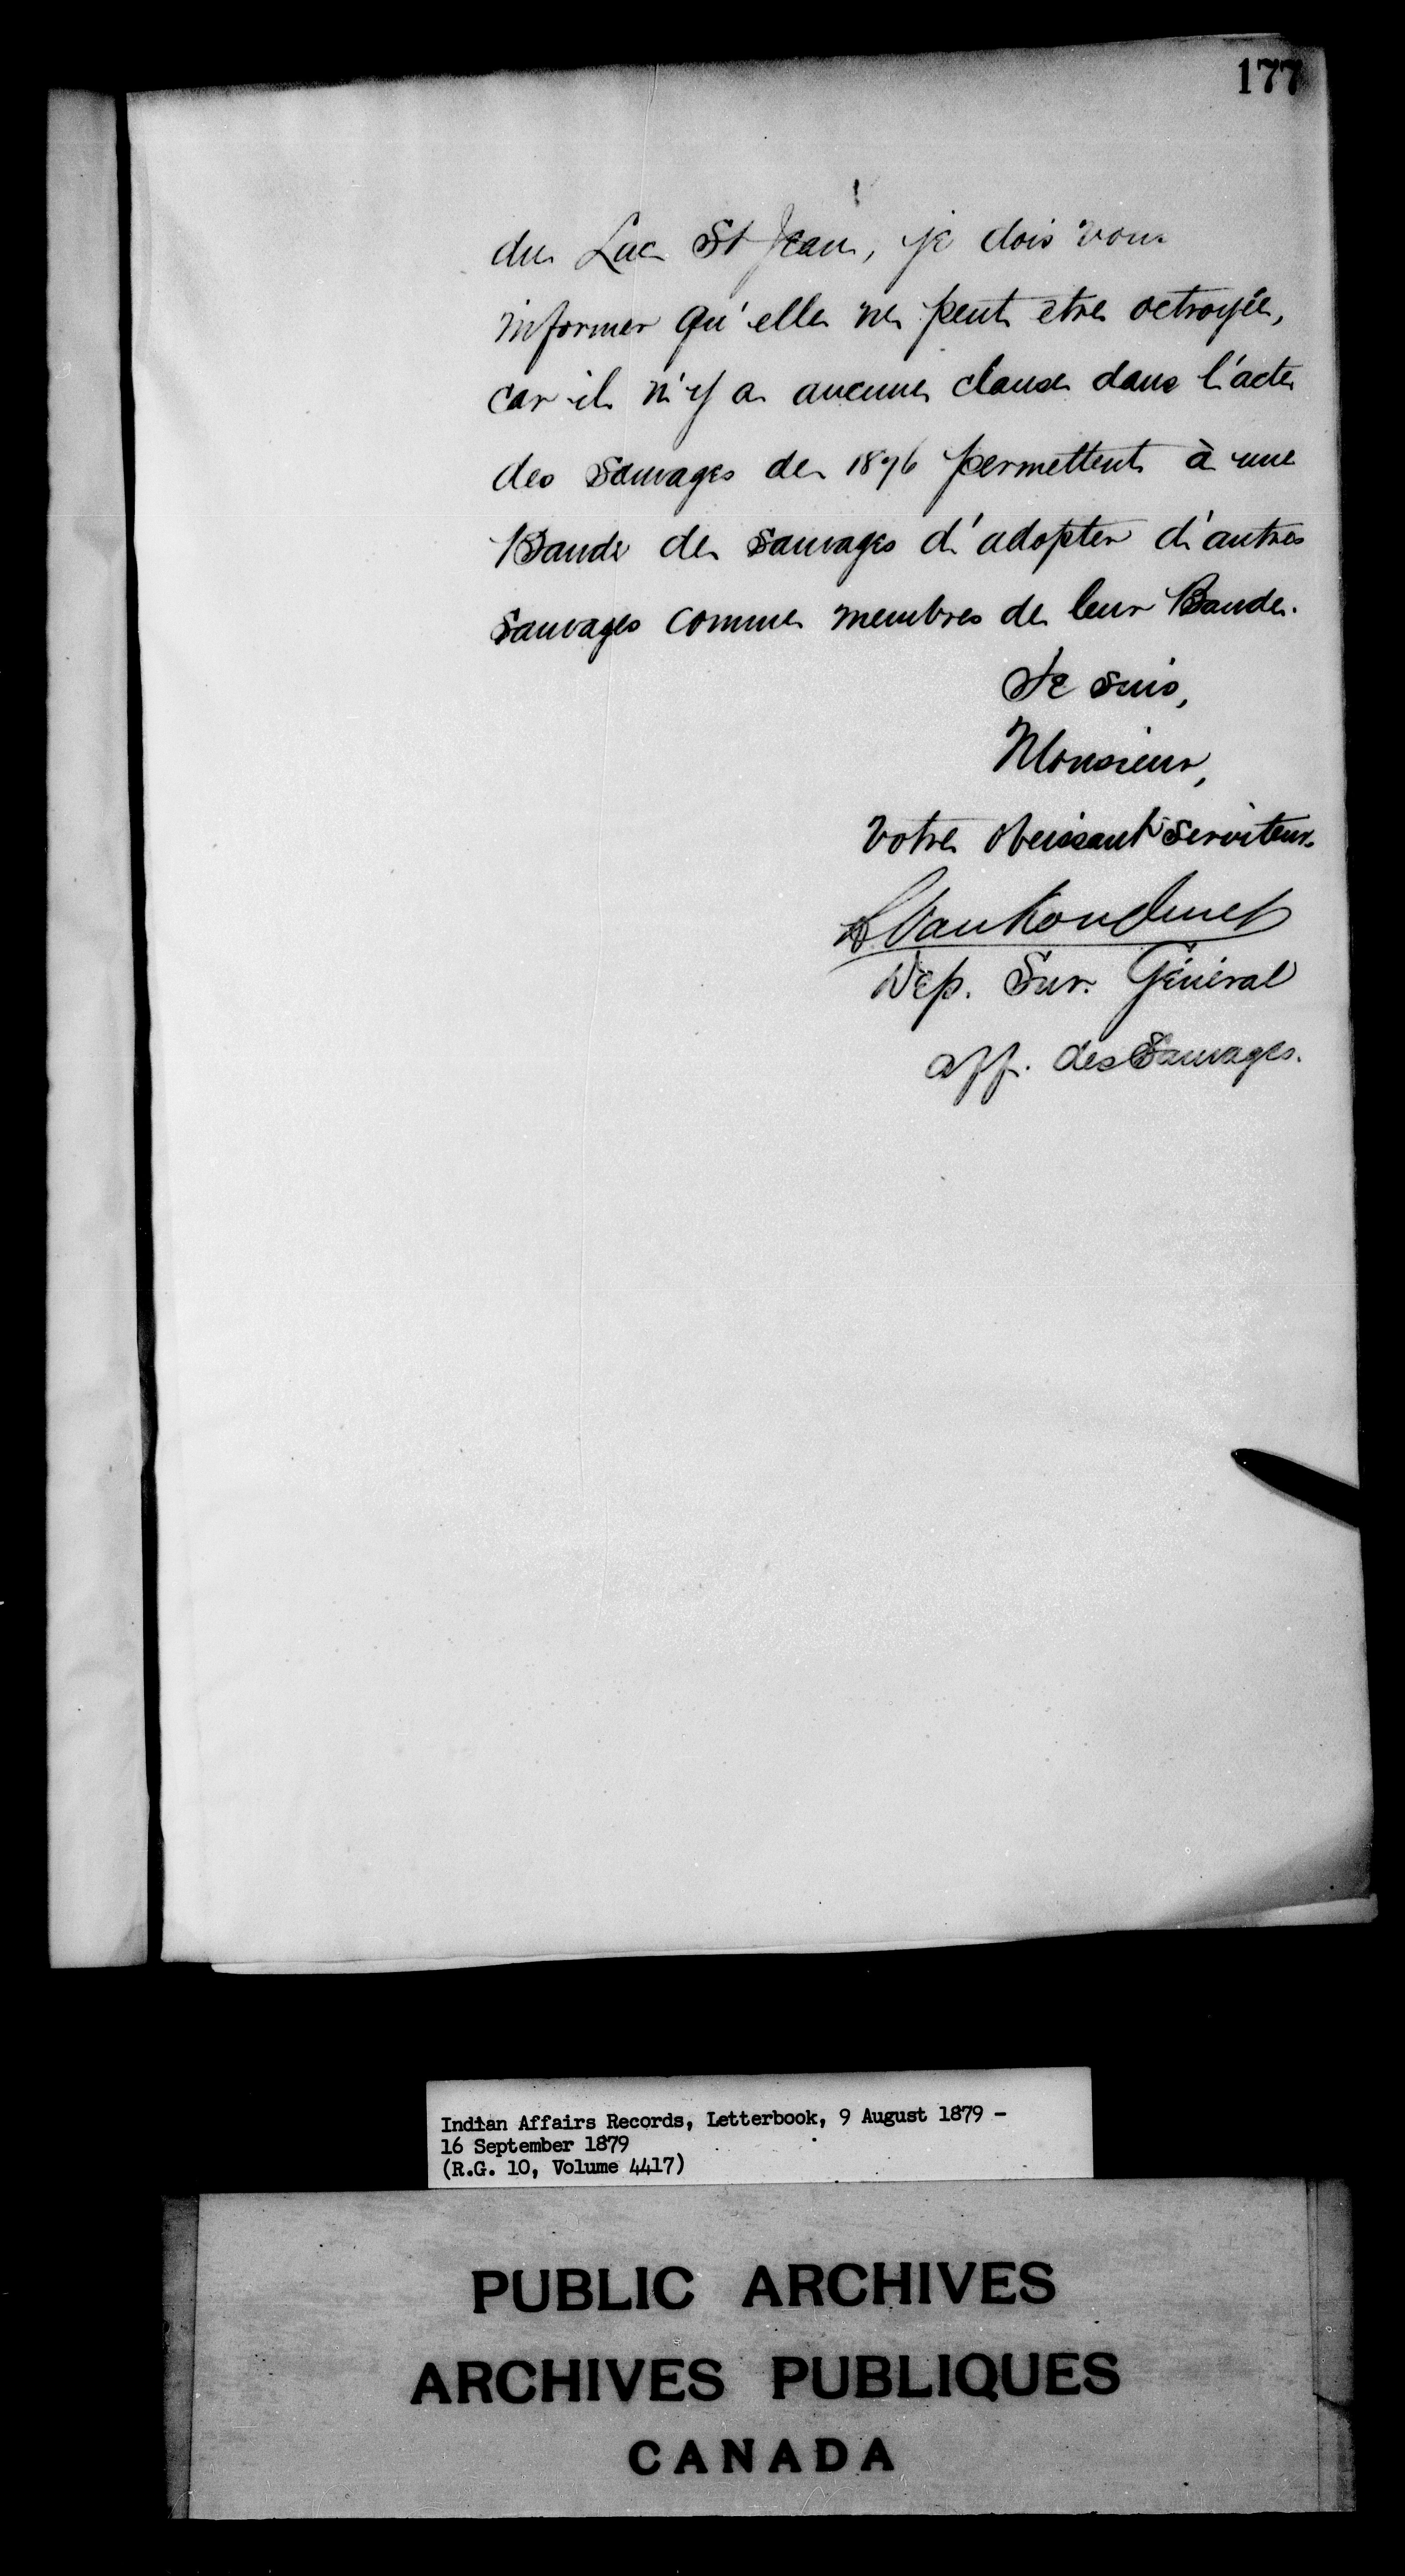 177
du Lac St Jean, je dois vous
informer qu'elle ne peut etre octroyée,
car il n'y a aucune clause dans l'acte
des Sauvages de 1876 permettent à une
Bande de Sauvages d'adopter d'autres
Sauvages comme membres de leur Bande.
Je suis,
Monsieur,
Votre obeissant Serviteur.
L Vankoughnet
Dep. Sur. Général
aff. des Sauvages.
Indian Affairs Records, Letterbook, 9 August 1879 -
16 September 1879
(R.G. 10, Volume 4417)
PUBLIC ARCHIVES
ARCHIVES PUBLIQUES
CANADA